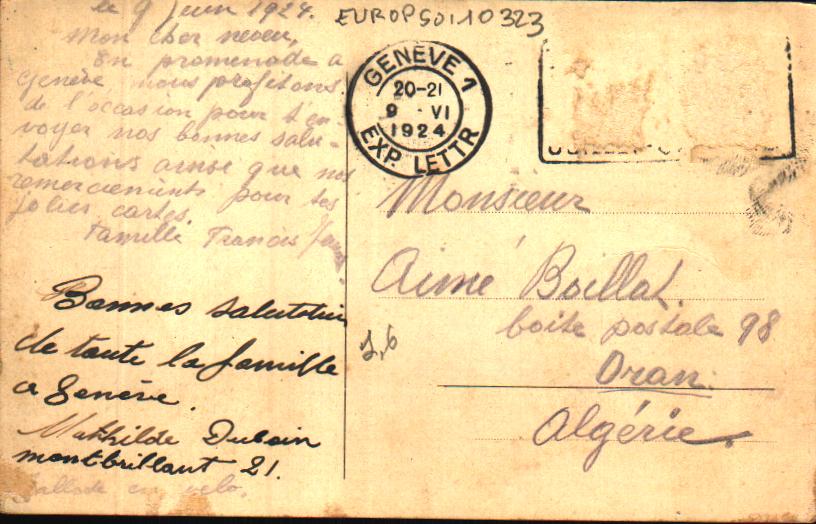 le 9 Juin 1924.
Mon cher neveu,
En promenade a
Genève nous profitons
de l'occasion pour t'en
voyer nos bonnes salu-
tations ainsi que nos
remerciements pour tes
jolies cartes
Famille Francis
Bonnes salutations
de toute la famille
a Genève.
Mathilde Duboin
montbrillant 21.
en velo.
EUROPS0110323
GENEVE 1
20-21
9 · VI
1924
EXP. LETTR
Monsieur
Aimé Boillat
boite postale 98
Oran.
Algérie.
1,6